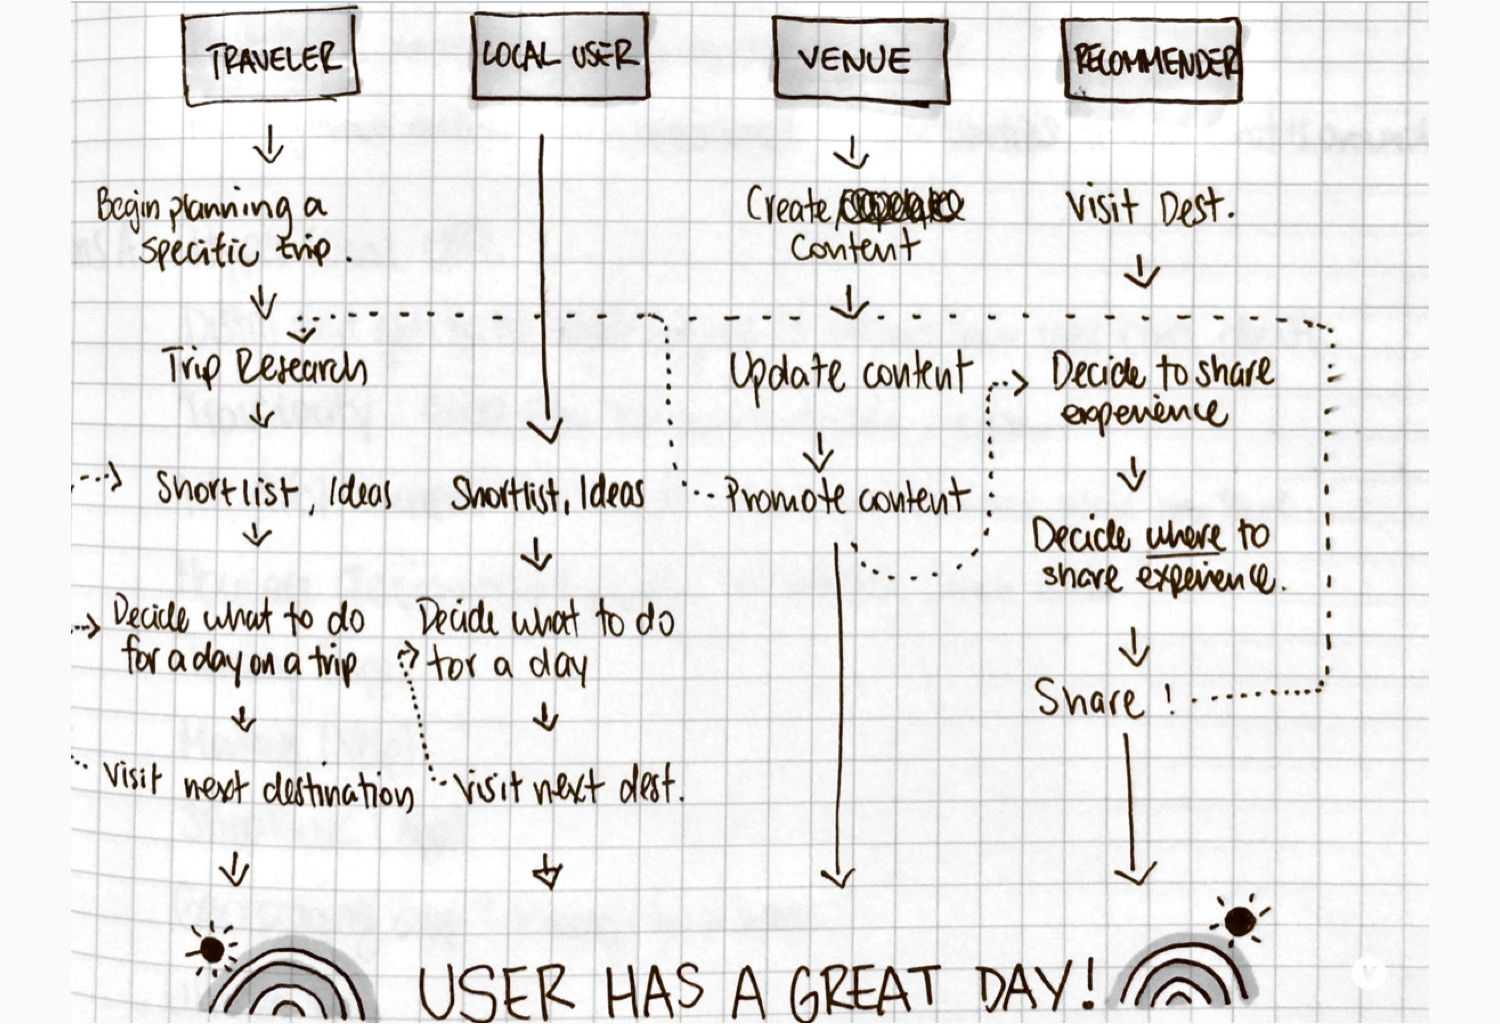 TRAVELER
LOCAL USER
VENUE
RECOMMENDER
Begin planning a
specific trip.
Trip Research
Shortlist, Ideas
Decide what to do
for a day on a trip
Visit next destination
Shortlist, Ideas
Decide what to do
for a day
Visit next dest.
Create
Content
Update content
Promote content
Visit Dest.
Decide to share
experience
Decide where to
share experience.
Share !
USER HAS A GREAT DAY!